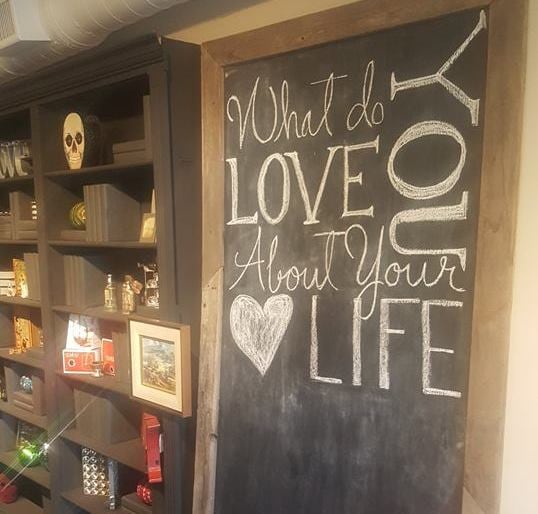 What do YOU
LOVE
About Your
LIFE